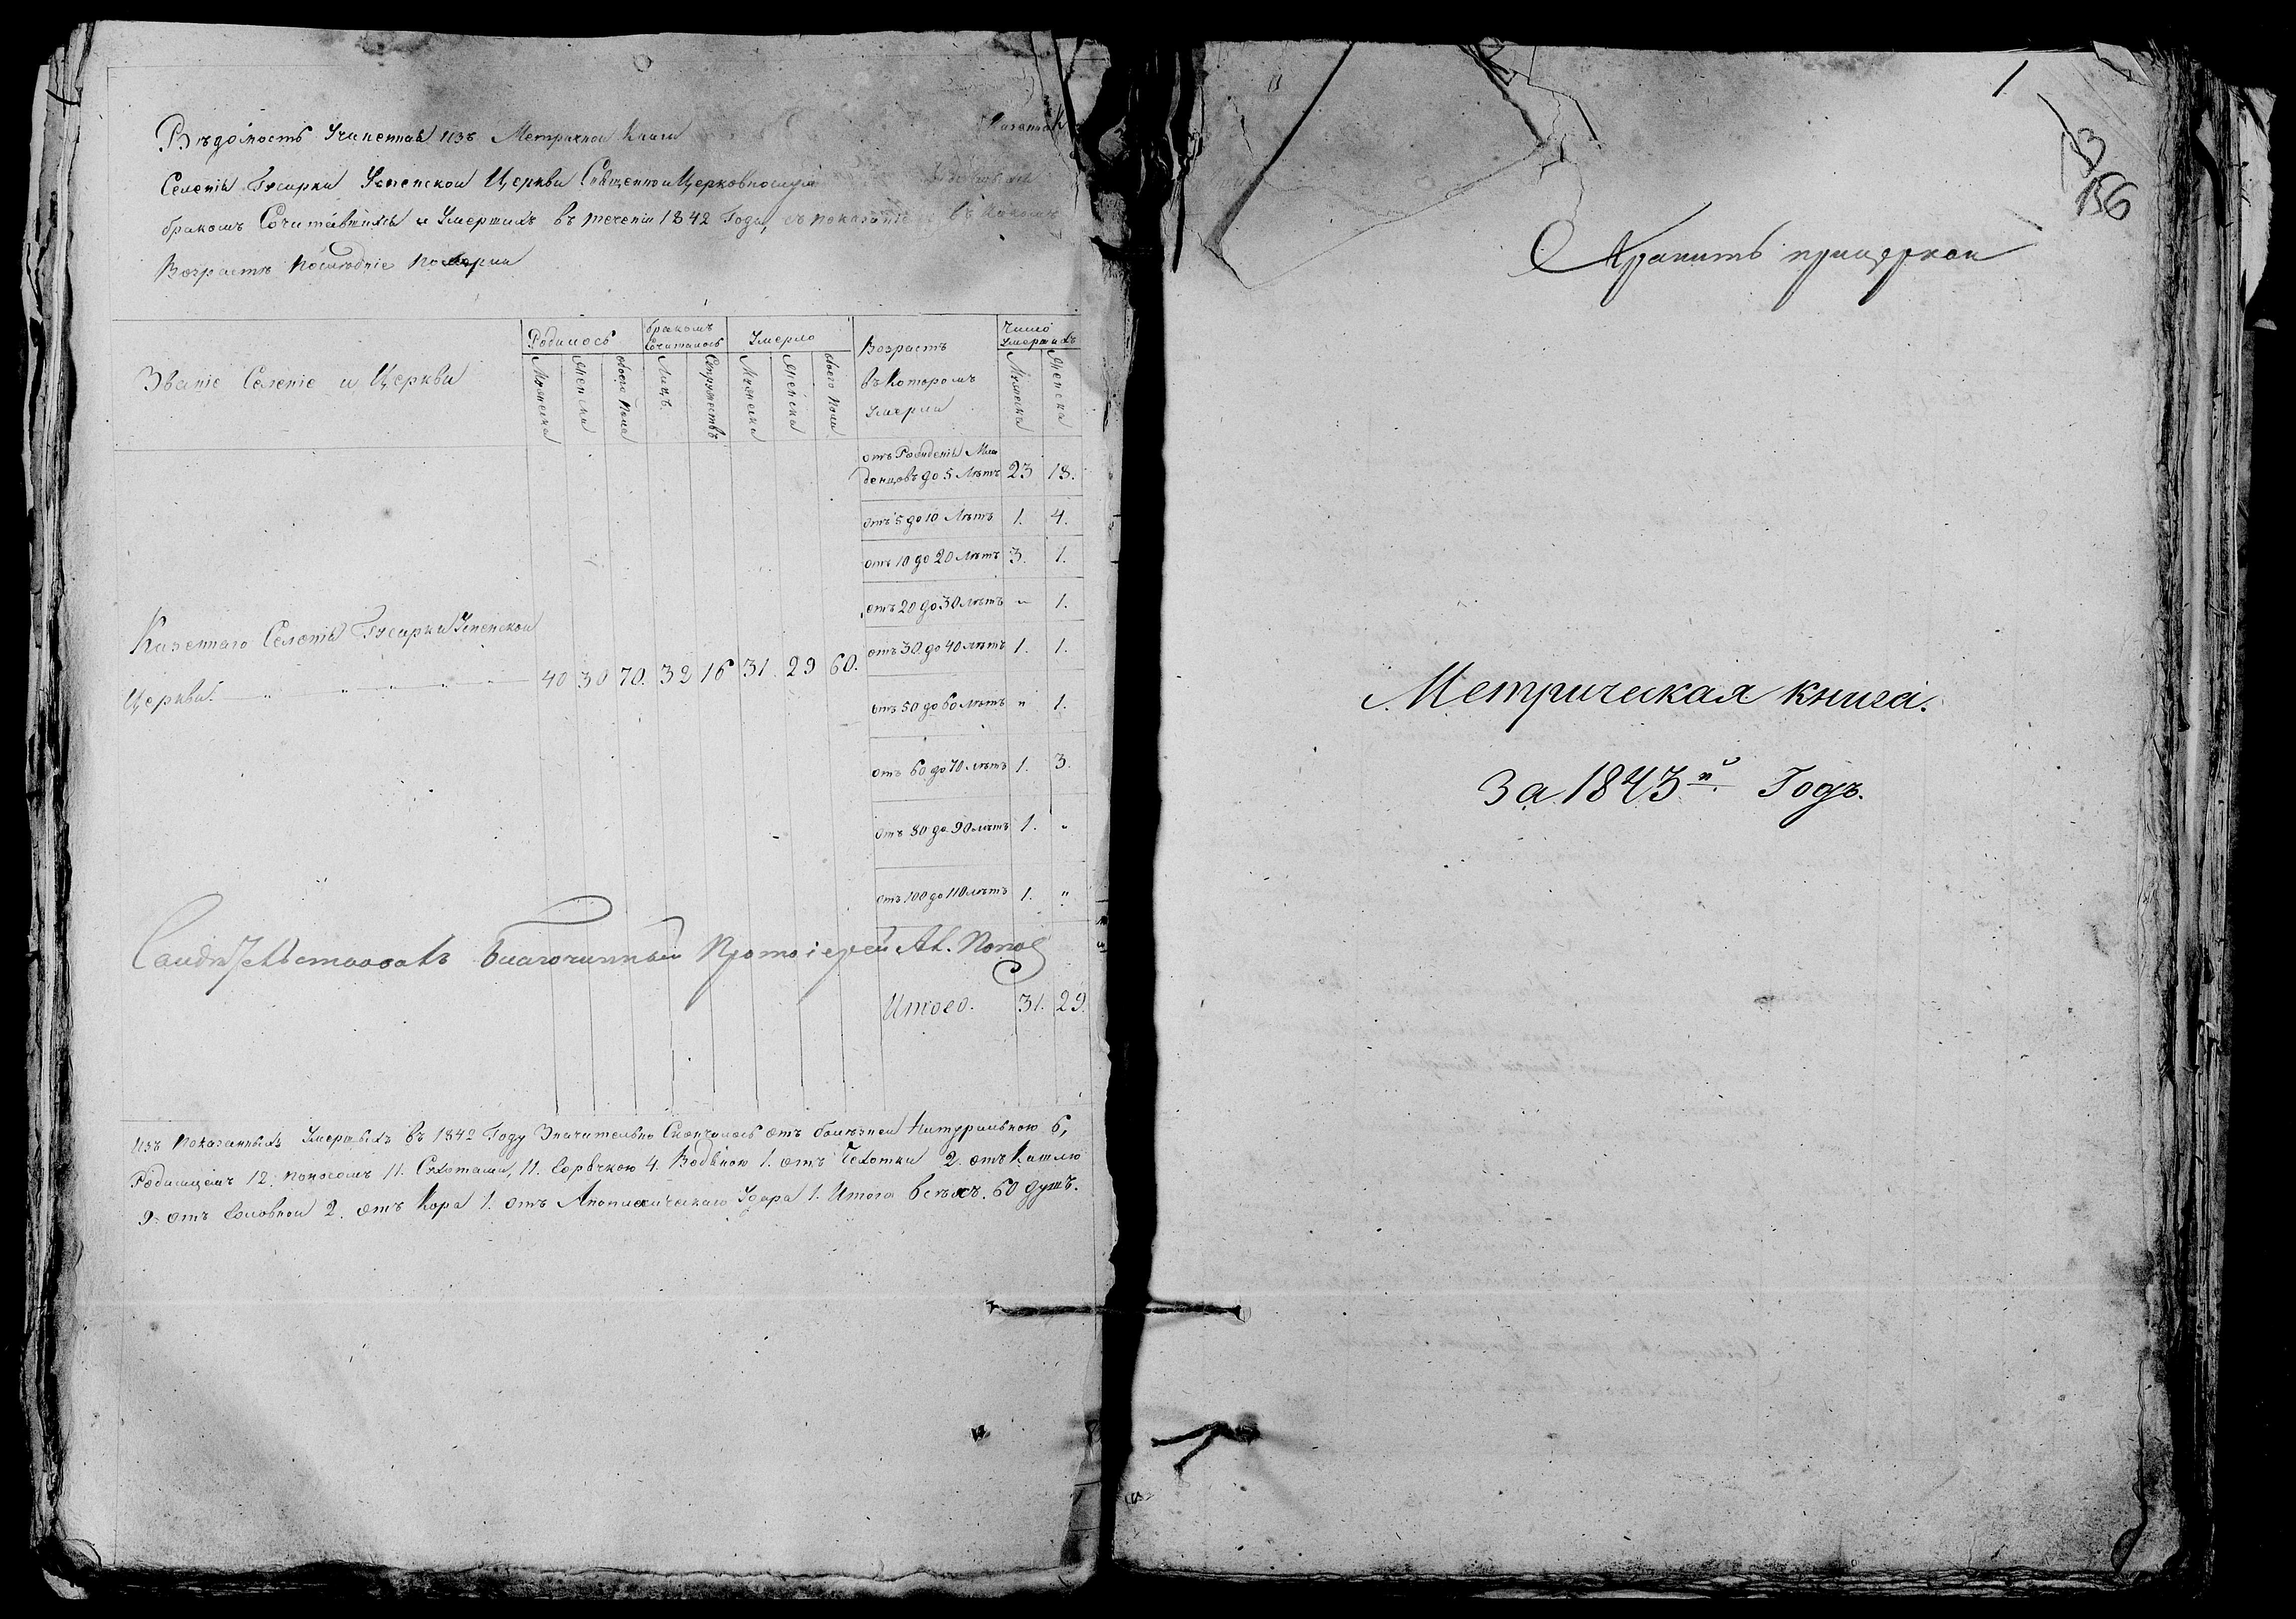 Вѣдомость Учиненная изъ Метричной Книги Казеннаго
Селенія Гусарки Успенской Церкви Священно и Церковнослужи
бракомъ Сочитавшихся и Умершихъ въ теченіи 1842 Года, съ показаніемъ въ какомъ
Возрастѣ Послѣдніе Померли
Званіе Селеніе и Церкви
Родилось
Мужеска
Женска
обоего Пола
бракомъ
Сочиталось
Лицъ
Супружествъ
Умерло
Мужеска
Женска
обоего Пола
Возрастъ
въ Которомъ
Умерли
Число
Умершихъ
Мужеска
Женска
отъ Рожденія Мла
денцовъ до 5 Лѣтъ 23 18.
отъ 5 до 10 Лѣтъ 1. 4.
отъ 10 до 20 Лѣтъ 3. 1.
отъ 20 до 30 Лѣтъ " 1.
отъ 30 до 40 Лѣтъ 1. 1.
отъ 50 до 60 Лѣтъ " 1.
отъ 60 до 70 Лѣтъ 1. 3.
отъ 80 до 90 Лѣтъ 1. "
отъ 100 до 110 Лѣтъ 1. "
Казеннаго Селенія Гусарки Успенской
Церкви. 40 30 70. 32 16 31. 29 60.
Свидѣтельствовалъ Благочинный Протоіерей Ал. Попов
Итого. 31. 29.
Изъ Показанныхъ Умершихъ въ 1842 Году Значительно Скончалось отъ болѣзней Натуральною 6,
Родимцемъ 12. поносомъ 11. Сухотами, 11. Горячкою 4. Водяною 1. отъ Чехотки 2. отъ Кашлю
9. отъ Головной 2. отъ Кора 1. отъ Апоплексическаго Удара 1. Итого всѣхъ. 60 душъ.
1
13
156
Хранить при церкви
Метрическая книга.
За 1843й Годъ.